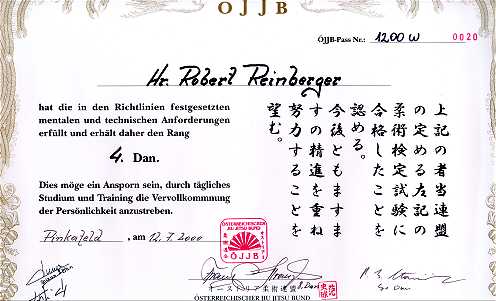 ÖJJB
ÖJJB-Pass Nr.: 1200 W 0020
Hr. Robert Reinberger
hat die in den Richtlinien festgesetzten
mentalen und technischen Anforderungen
erfüllt und erhält daher den Rang
4. Dan.
Dies möge ein Ansporn sein, durch tägliches
Studium und Training die Vervollkommnung
der Persönlichkeit anzustreben.
上記の者当連盟
の定める左記の
柔術検定試験に
合格したことを
認める。
今後ともますま
すの精進を重ね
努力することを
望む。
Pinkafeld, am 12.7.2000
ÖSTERREICHISCHER
JIU JITSU BUND
ÖJJB
オーストリア柔術連盟
ÖSTERREICHISCHER JIU JITSU BUND